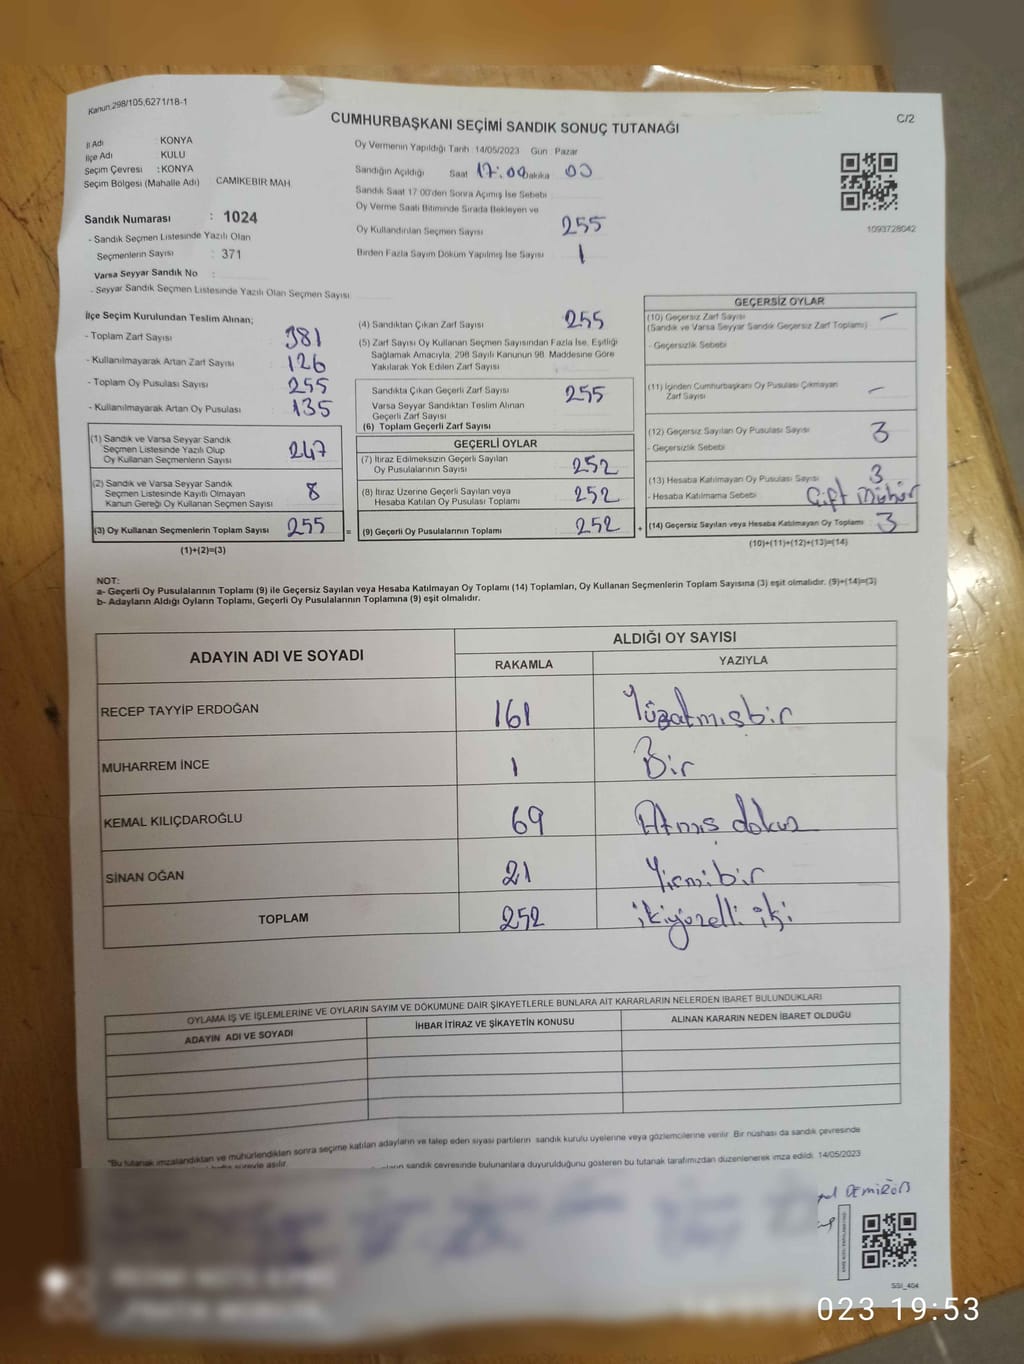 Kanun.298/105,6271/18-1
C/2
CUMHURBAŞKANI SEÇİMİ SANDIK SONUÇ TUTANAĞI
İl Adı : KONYA
İlçe Adı : KULU
Seçim Çevresi : KONYA
Seçim Bölgesi (Mahalle Adı) CAMİKEBİR MAH.
Sandık Numarası : 1024
- Sandık Seçmen Listesinde Yazılı Olan
Seçmenlerin Sayısı : 371
Varsa Seyyar Sandık No :
- Seyyar Sandık Seçmen Listesinde Yazılı Olan Seçmen Sayısı
Oy Vermenin Yapıldığı Tarih :14/05/2023 Gün : Pazar
Sandığın Açıldığı Saat 17:00 Dakika 00
Sandık Saat 17:00'den Sonra Açımış İse Sebebi
Oy Verme Saati Bitiminde Sırada Bekleyen ve
Oy Kullandırılan Seçmen Sayısı 255
Birden Fazla Sayım Döküm Yapılmış İse Sayısı 1
1093728042
İlçe Seçim Kurulundan Teslim Alınan;
- Toplam Zarf Sayısı 381
- Kullanılmayarak Artan Zarf Sayısı 126
- Toplam Oy Pusulası Sayısı 255
- Kullanılmayarak Artan Oy Pusulası 135
(1) Sandık ve Varsa Seyyar Sandık
Seçmen Listesinde Yazılı Olup
Oy Kullanan Seçmenlerin Sayısı 247
(2) Sandık ve Varsa Seyyar Sandık
Seçmen Listesinde Kayıtlı Olmayan
Kanun Gereği Oy Kullanan Seçmen Sayısı 8
(3) Oy Kullanan Seçmenlerin Toplam Sayısı 255 =
(1)+(2)=(3)
(4) Sandıktan Çıkan Zarf Sayısı 255
(5) Zarf Sayısı Oy Kullanan Seçmen Sayısından Fazla İse, Eşitliği
Sağlamak Amacıyla, 298 Sayılı Kanunun 98. Maddesine Göre
Yakılarak Yok Edilen Zarf Sayısı
Sandıkta Çıkan Geçerli Zarf Sayısı 255
Varsa Seyyar Sandıktan Teslim Alınan
Geçerli Zarf Sayısı
(6) Toplam Geçerli Zarf Sayısı
GEÇERLİ OYLAR
(7) İtiraz Edilmeksizin Geçerli Sayılan
Oy Pusulalarının Sayısı 252
(8) İtiraz Üzerine Geçerli Sayılan veya
Hesaba Katılan Oy Pusulası Toplamı 252
(9) Geçerli Oy Pusulalarının Toplamı 252 +
GEÇERSİZ OYLAR
(10) Geçersiz Zarf Sayısı –
(Sandık ve Varsa Seyyar Sandık Geçersiz Zarf Toplamı)
- Geçersizlik Sebebi
(11) İçinden Cumhurbaşkanı Oy Pusulası Çıkmayan
Zarf Sayısı –
(12) Geçersiz Sayılan Oy Pusulası Sayısı 3
- Geçersizlik Sebebi
(13) Hesaba Katılmayan Oy Pusulası Sayısı 3
- Hesaba Katılmama Sebebi Çift Mühür
(14) Geçersiz Sayılan veya Hesaba Katılmayan Oy Toplamı 3
(10)+(11)+(12)+(13)=(14)
NOT:
a- Geçerli Oy Pusulalarının Toplamı (9) ile Geçersiz Sayılan veya Hesaba Katılmayan Oy Toplamı (14) Toplamları, Oy Kullanan Seçmenlerin Toplam Sayısına (3) eşit olmalıdır. (9)+(14)=(3)
b- Adayların Aldığı Oyların Toplamı, Geçerli Oy Pusulalarının Toplamına (9) eşit olmalıdır.
ADAYIN ADI VE SOYADI
ALDIĞI OY SAYISI
RAKAMLA YAZIYLA
RECEP TAYYİP ERDOĞAN 161 Yüzatmışbir
MUHARREM İNCE 1 Bir
KEMAL KILIÇDAROĞLU 69 Atmış dokuz
SİNAN OĞAN 21 Yirmibir
TOPLAM 252 ikiyüzelli iki
OYLAMA İŞ VE İŞLEMLERİNE VE OYLARIN SAYIM VE DÖKÜMÜNE DAİR ŞİKAYETLERLE BUNLARA AİT KARARLARIN NELERDEN İBARET BULUNDUKLARI
ADAYIN ADI VE SOYADI İHBAR İTİRAZ VE ŞİKAYETİN KONUSU ALINAN KARARIN NEDEN İBARET OLDUĞU
"Bu tutanak imzalandıktan ve mühürlendikten sonra seçime katılan adayların ve talep eden siyasi partilerin sandık kurulu üyelerine veya gözlemcilerine verilir. Bir nüshası da sandık çevresinde
süreyle asılır.
sandık çevresinde bulunanlara duyurulduğunu gösteren bu tutanak tarafımızdan düzenlenerek imza edildi. 14/05/2023
DEMİRÖZ
SSI_404
023 19:53